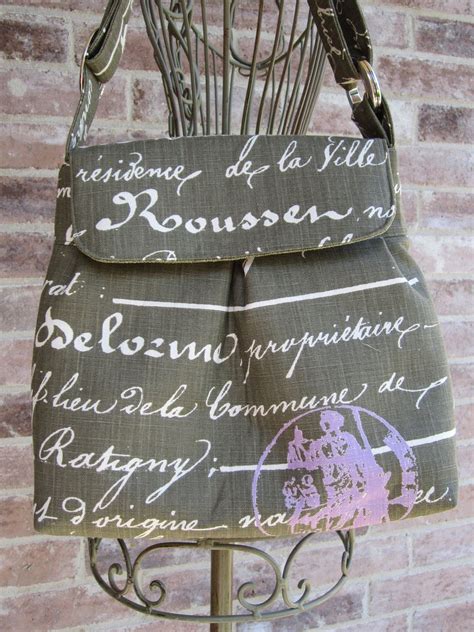 résidence de la Ville
Roussen
Delorme propriétaire
lieu de la Commune de
Ratigny ;
d'origine na